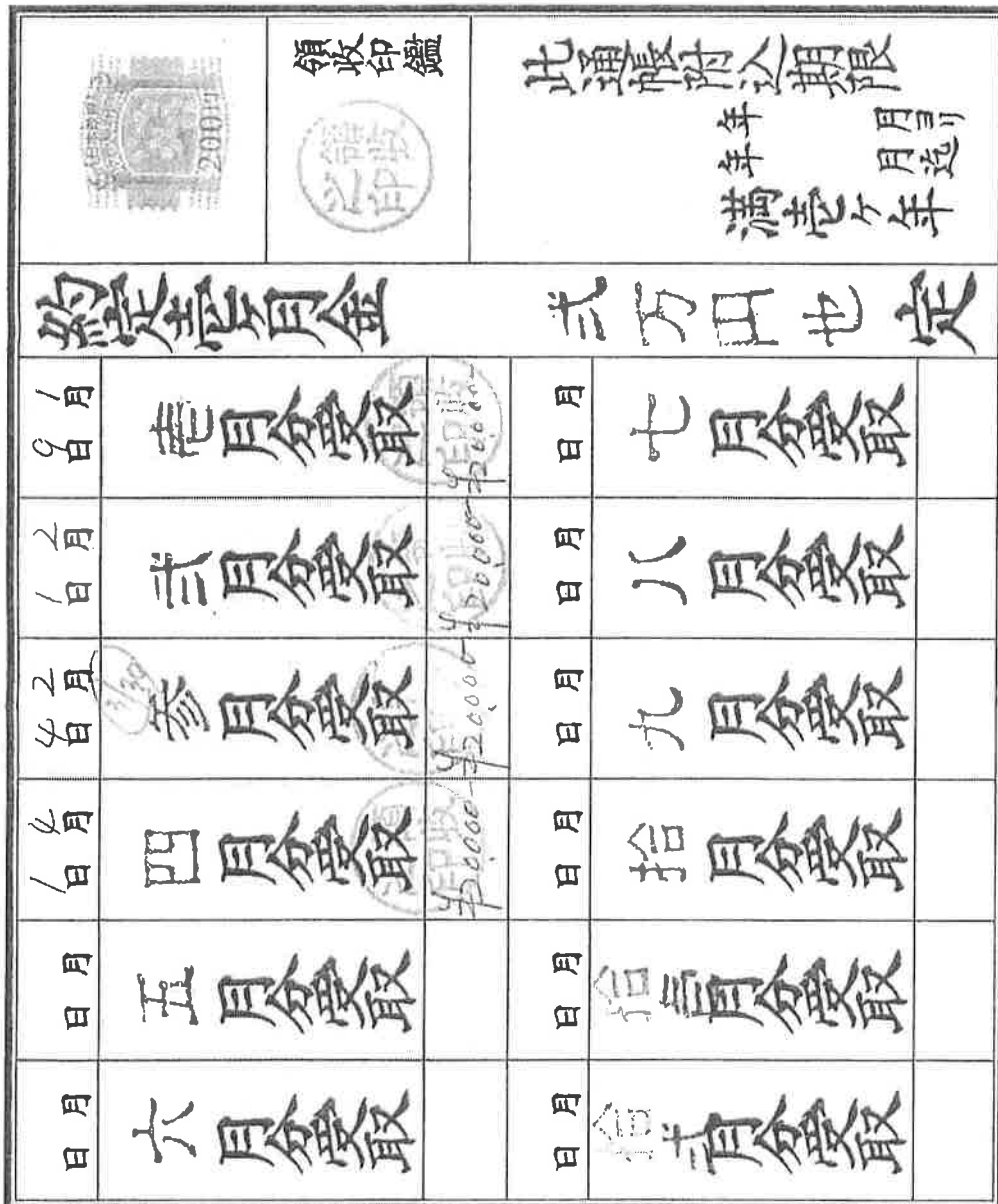 200円
領收印鑑
領收之印
此通帳附込期限
年 月ヨリ
年 月迄
満壱ヶ年
約定壱ヶ月金 弐万円也 定
1月9日 壱月分受取 ¥20.000-
2月1日 弐月分受取 ¥20.000-
2月4日 参月分受取 ¥20.000-
3/30
4月1日 四月分受取 ¥20.000-
月 日 五月分受取
月 日 六月分受取
月 日 七月分受取
月 日 八月分受取
月 日 九月分受取
月 日 拾月分受取
月 日 拾壱月分受取
月 日 拾弐月分受取